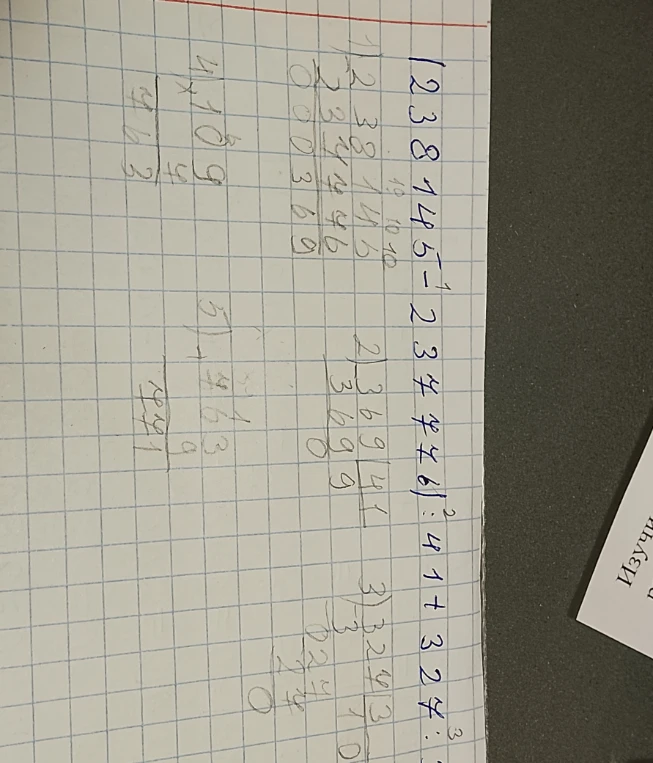 (238145 -¹ 237776)² : 41 + 327 :³
1) 238145
- 237776
000369
2) 369 | 41
- 369 | 9
0
3) 327 | 3
3 | 10
027
27
0
4) × 109
7
763
5) + 763
9
771